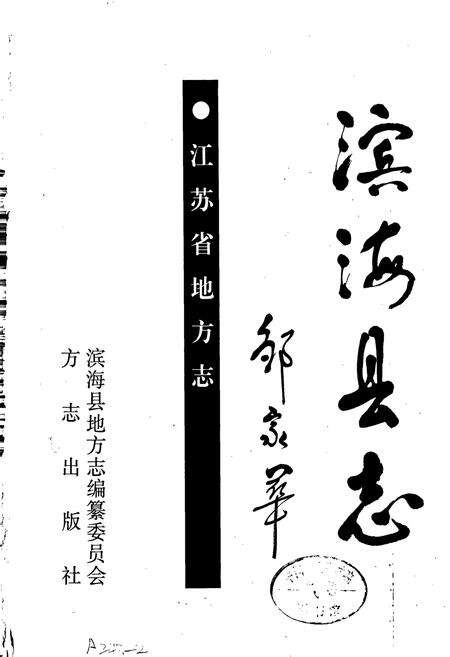 滨海县志
邹家华
●江苏省地方志
滨海县地方志编纂委员会
方志出版社